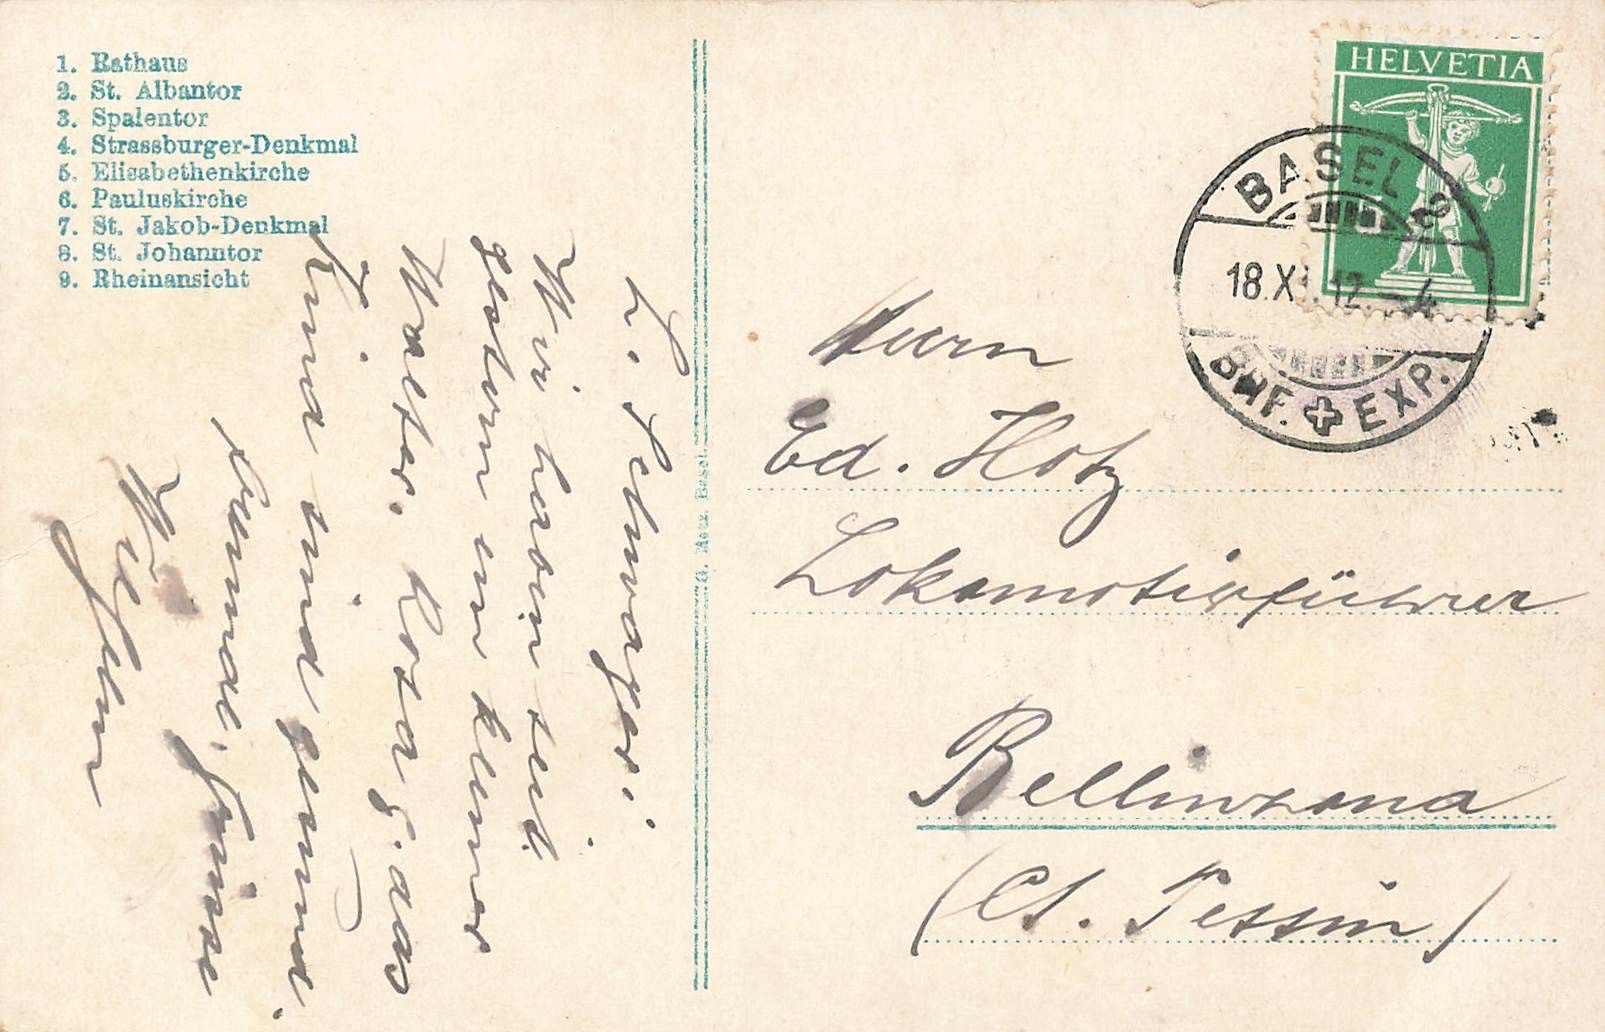 1. Rathaus
2. St. Albantor
3. Spalentor
4. Strassburger-Denkmal
5. Elisabethenkirche
6. Pauluskirche
7. St. Jakob-Denkmal
8. St. Johanntor
9. Rheinansicht
L. Schwager!
Wir haben seit
gestern ein kleiner
Walter. Rosa & das
Kind sind gesund.
Grüsse
G. Metz, Basel.
HELVETIA
BASEL 2
18.X 12.-4
BHF. EXP.
Herrn
Ed. Hotz
Lokomotivführer
Bellinzona
(Ct. Tessin)